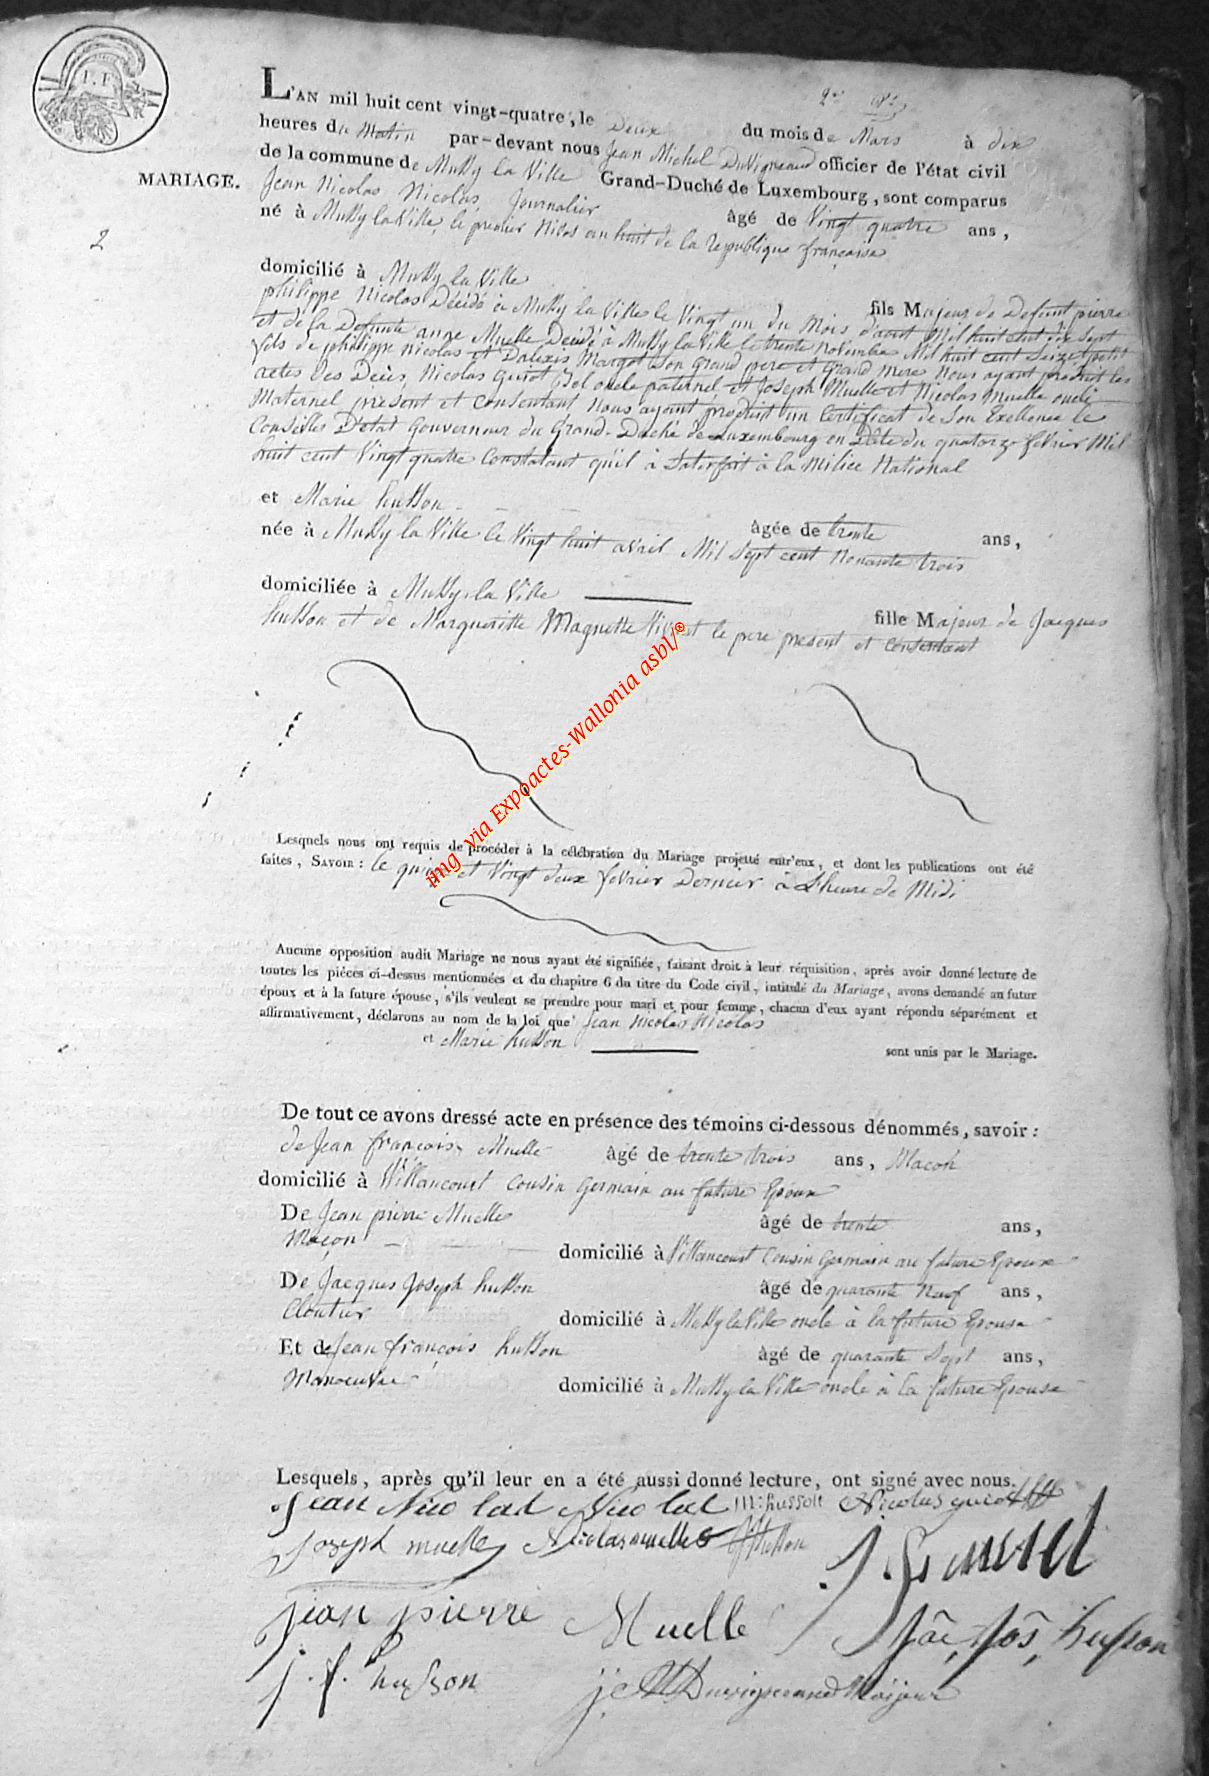 L'AN mil huit cent vingt-quatre, le Deux du mois de Mars à dix
heures du Matin par-devant nous Jean Michel Duvigneaud officier de l'état civil
de la commune de Mussy la Ville Grand-Duché de Luxembourg, sont comparus
MARIAGE.
2
Jean Nicolas Nicolas, Journalier âgé de Vingt quatre ans,
né à Mussy la Ville, le premier Nivos an huit de la Republique française
domicilié à Mussy la Ville
fils Majeur de Defunt pierre
philippe Nicolas Décédé à Mussy la Ville le Vingt un du Mois d'aout Mil huit cent dix sept
et de la Defunte anne Muelle Décédé à Mussy la Ville le trente Novembre Mil huit cent Seize petit
fils de philippe Nicolas et Margot Son Grand pere et Grand mere Nous ayant produit les
actes des Décès, Nicolas Guiot oncle paternel et Joseph Muelle et Nicolas Muelle oncle
Maternel présent et Consentant Nous ayant produit un Certificat de Son Exellence le
Conseiller D'etat Gouverneur du Grand-Duché de Luxembourg en Date du quatorze fevrier Mil
huit cent Vingt quatre Constatant qu'il à Satisfait à la Milice National
et Marie husson
née à Mussy la Ville le Vingt huit avril Mil Sept cent Nonante trois âgée de trente ans,
domiciliée à Mussy la Ville
fille Majeur de Jacques
husson et de Margueritte Magnette Vivant le pere present et consentant
img via Expoactes-Wallonia asbl/®
Lesquels nous ont requis de procéder à la célébration du Mariage projetté entr'eux, et dont les publications ont été
faites, SAVOIR : le quinze et Vingt deux fevrier Dernier à L'heure de Midi
Aucune opposition audit Mariage ne nous ayant été signifiée, faisant droit à leur réquisition, après avoir donné lecture de
toutes les pièces ci-dessus mentionnées et du chapitre 6 du titre du Code civil, intitulé du Mariage, avons demandé au futur
époux et à la future épouse, s'ils veulent se prendre pour mari et pour femme, chacun d'eux ayant répondu séparément et
affirmativement, déclarons au nom de la loi que Jean Nicolas Nicolas
et Marie husson
sont unis par le Mariage.
De tout ce avons dressé acte en présence des témoins ci-dessous dénommés, savoir :
de Jean françois Muelle âgé de trente trois ans, Macon
domicilié à Willancourt Cousin Germain au future Epoux
De Jean pierre Muelle âgé de trente ans,
Maçon domicilié à Willancourt Cousin Germain au future Epoux
De Jacques Joseph husson âgé de quarante Neuf ans,
Cloutier domicilié à Mussy la Ville oncle à la future Epouse
Et de Jean françois husson âgé de quarante Sept ans,
Manoeuvre domicilié à Mussy la Ville oncle à la future Epouse
Lesquels, après qu'il leur en a été aussi donné lecture, ont signé avec nous.
Jean Nicolas Nicolas m: husson Nicolas guiot
Joseph muelle Nicolas muelle husson
jean pierre Muelle Jac, Jos, husson
j. f. husson j M Duvigneaud Maijeur